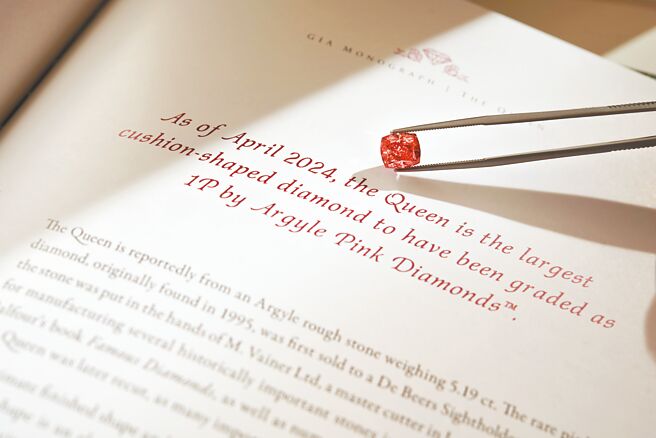 GIA MONOGRAPH | THE QUEEN
As of April 2024, the Queen is the largest
cushion-shaped diamond to have been graded as
1P by Argyle Pink Diamonds™.
The Queen is reportedly from an Argyle rough stone weighing 5.19 ct. The rare
diamond, originally found in 1995, was first sold to a De Beers Sightholder
the stone was put in the hands of M. Vainer Ltd, a master cutter in
for manufacturing several historically important stones
Balfour's book Famous Diamonds, as well as
Queen was later recut, as many
finished shape
shape is